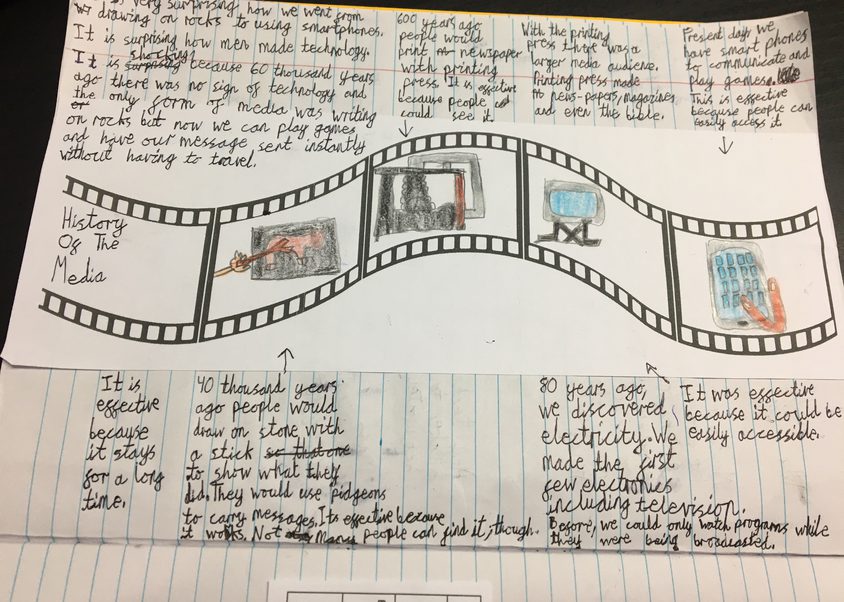 is very surprising how we went from
drawing on rocks to using smartphones.
It is surprising how men made technology.
It is shocking because 60 thousand years
ago there was no sign of technology and
the only form of media was writing
on rocks but now we can play games
and have our message sent instantly
without having to travel.
600 years ago
people would
print newspaper
with printing
press. It is effective
because people
could see it.
With the printing
press there was a
larger media audience.
Printing press made
news-papers, magazines
and even the bible.
Present day, we
have smart phones
to communicate and
play games.
This is effective
because people can
easily access it.
History
Of The
Media
It is
effective
because
it stays
for a long
time.
40 thousand years
ago people would
draw on stone with
a stick so that one
to show what they
did. They would use pidgeons
to carry messages. Its effective because
it works. Not many people can find it, though.
80 years ago,
we discovered
electricity. We
made the first
few electronics
including television.
Before, we could only watch programs while
they were being broadcasted.
It was effective
because it could be
easily accessible.